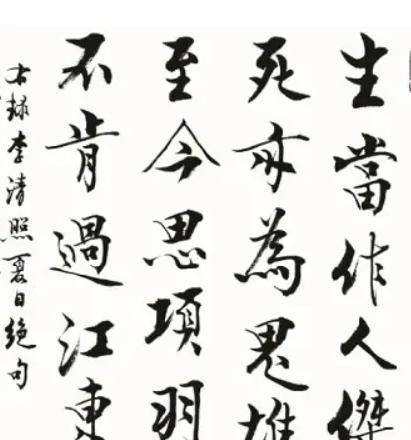 生當作人傑
死亦為鬼雄
至今思項羽
不肯過江東
右録李清照夏日絕句